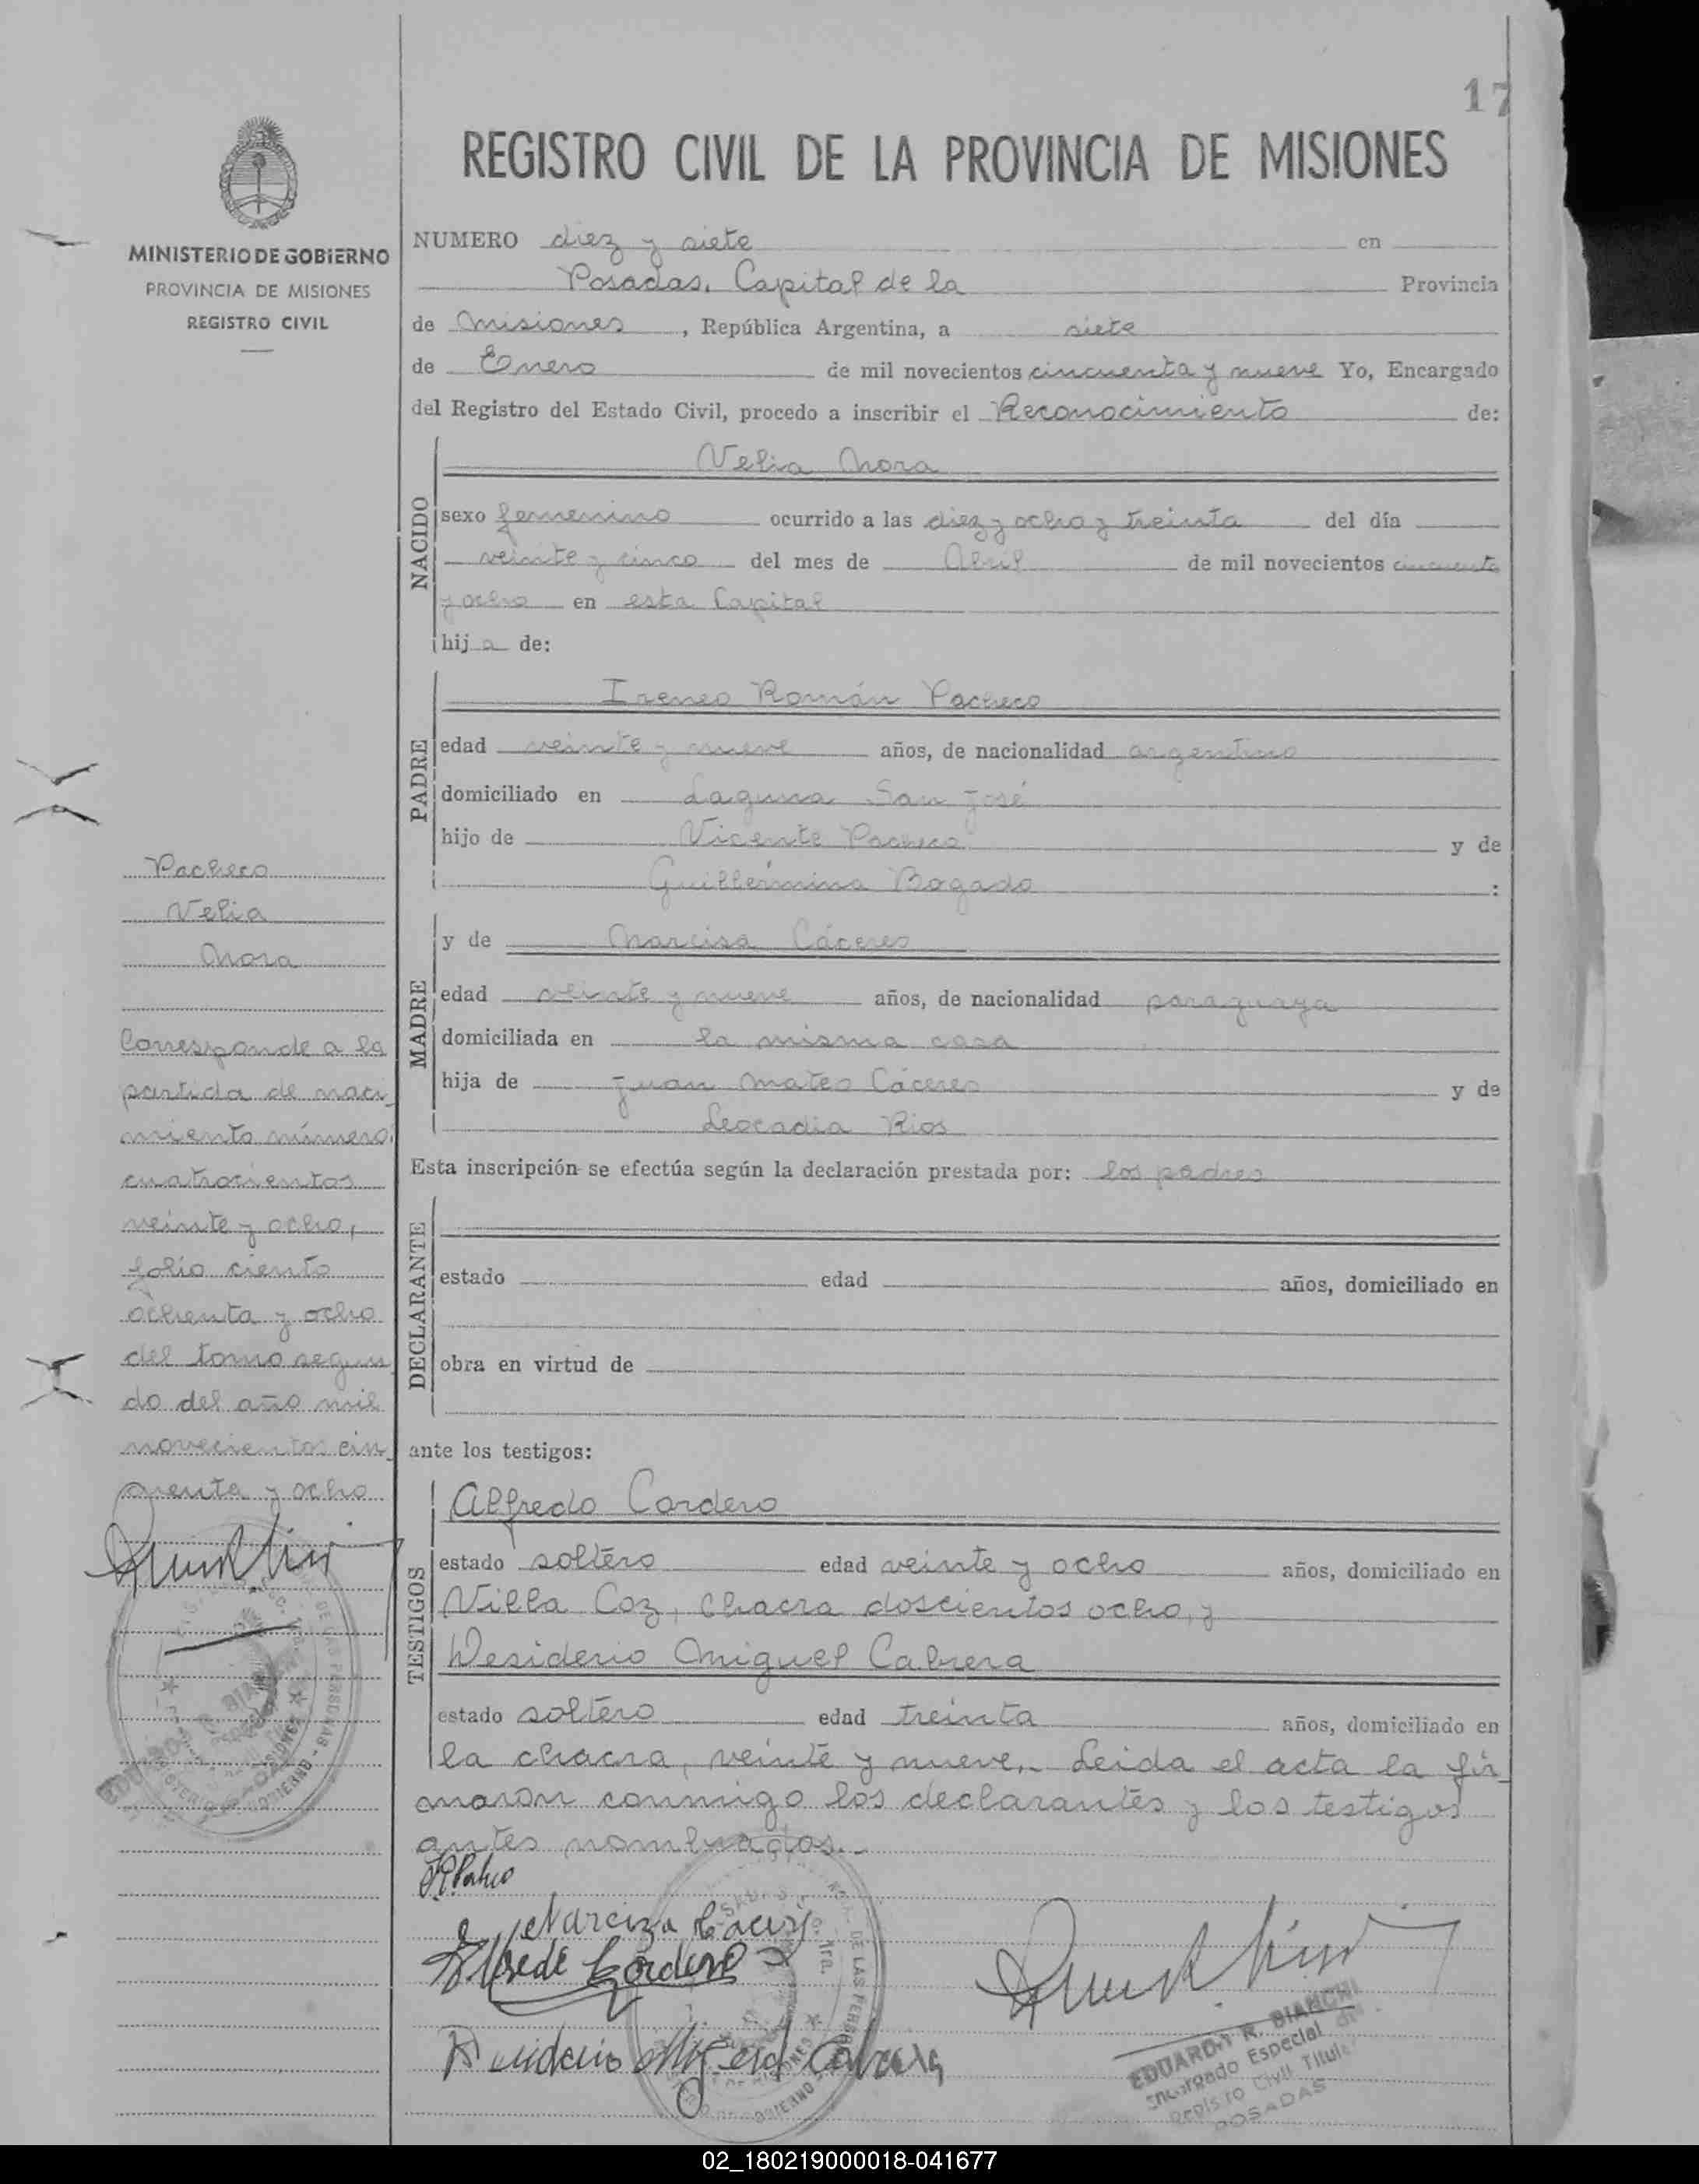 17
REGISTRO CIVIL DE LA PROVINCIA DE MISIONES
MINISTERIO DE GOBIERNO
PROVINCIA DE MISIONES
REGISTRO CIVIL
NUMERO diez y siete en
Posadas, Capital de la Provincia
de Misiones, República Argentina, a siete
de Enero de mil novecientos cincuenta y nueve Yo, Encargado
del Registro del Estado Civil, procedo a inscribir el Reconocimiento de:
NACIDO
Velia Nora
sexo femenino ocurrido a las diez y ocho y treinta del día
veinte y cinco del mes de Abril de mil novecientos cincuenta
y ocho en esta Capital
hija de:
PADRE
Ireneo Román Pacheco
edad veinte y nueve años, de nacionalidad argentino
domiciliado en Laguna San José
hijo de Vicente Pacheco y de
Guillermina Bogado :
MADRE
y de Narcisa Cáceres
edad veinte y nueve años, de nacionalidad paraguaya
domiciliada en la misma casa
hija de Juan Mateo Cáceres y de
Leocadia Rios
Esta inscripción se efectúa según la declaración prestada por: los padres
DECLARANTE
estado edad años, domiciliado en
obra en virtud de
ante los testigos:
TESTIGOS
Alfredo Cordero
estado soltero edad veinte y ocho años, domiciliado en
Villa Coz, chacra doscientos ocho, y
Desiderio Miguel Cabrera
estado soltero edad treinta años, domiciliado en
la chacra, veinte y nueve.- Leida el acta la fir
maron conmigo los declarantes y los testigos
antes nombrados.-
Narciza
Alfrede Cordero
Miguel Cabrera
EDUARDO R. BIANCHI
Encargado Especial
Registro Civil Titular
POSADAS
Pacheco
Velia
Nora
Corresponde a la
partida de naci
miento número
cuatrocientos
veinte y ocho,
folio ciento
ochenta y ocho
del tomo segun
do del año mil
novecientos cin
cuenta y ocho
02_180219000018-041677